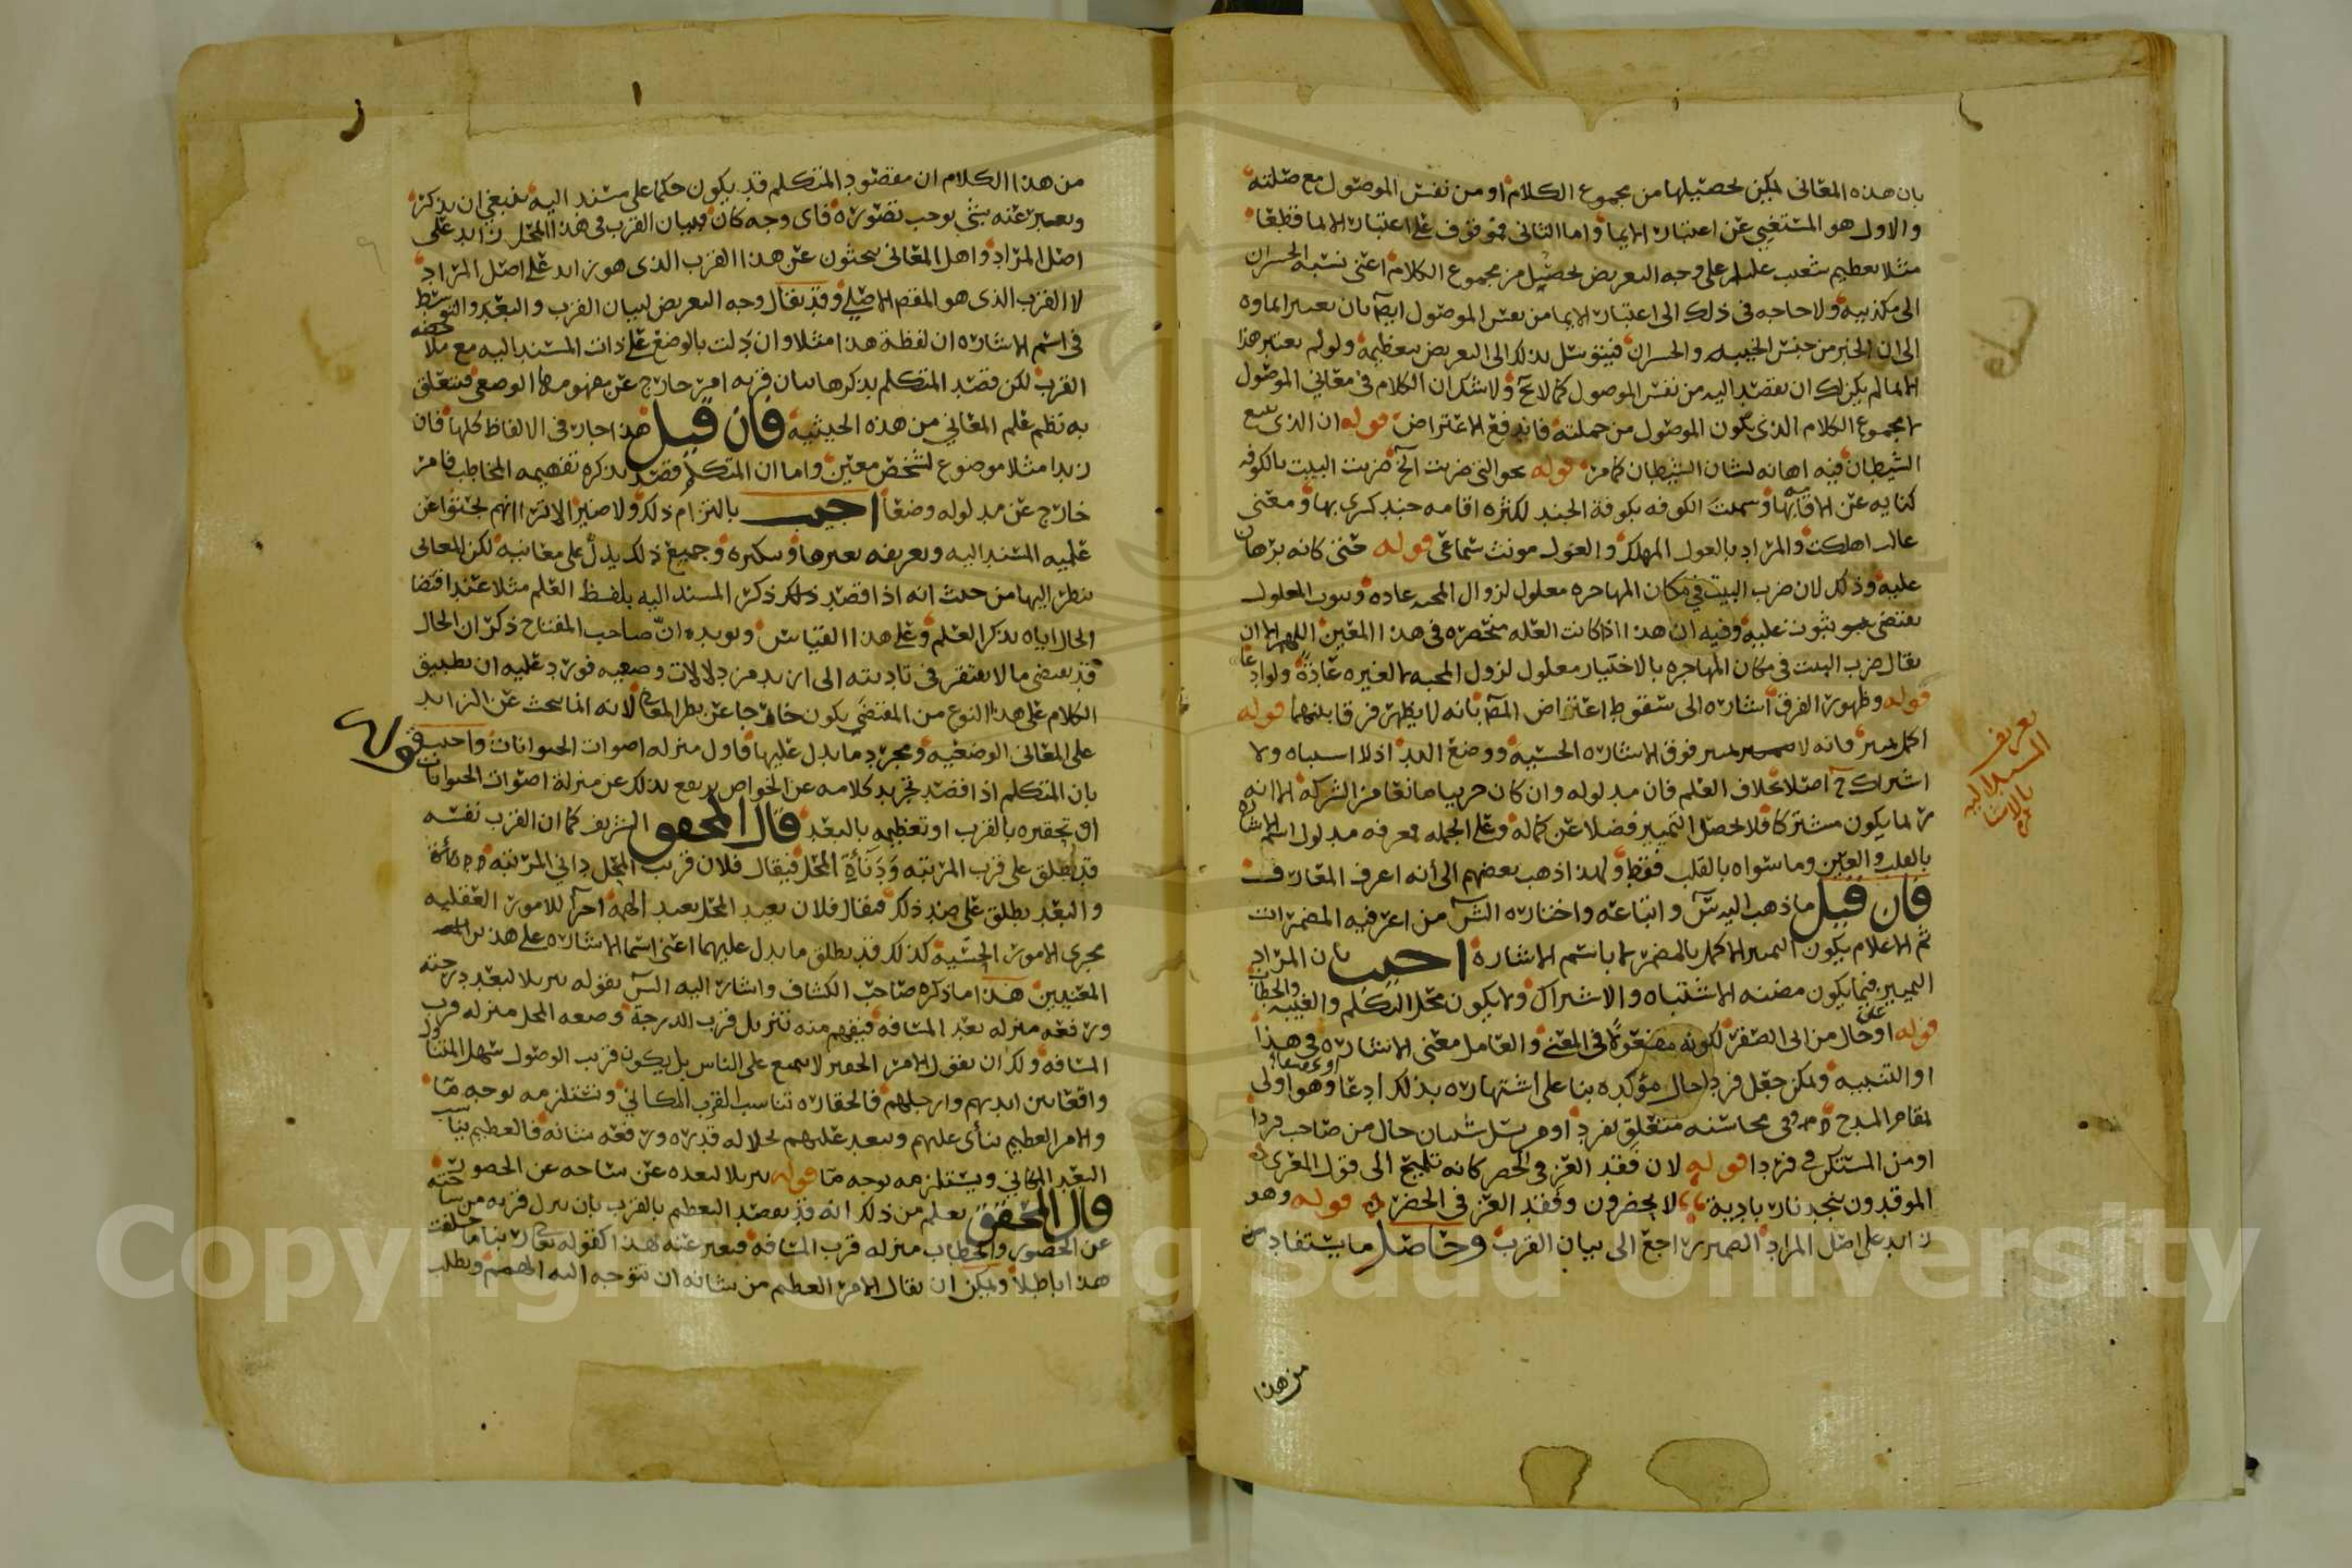 بان هذه المعانى يمكن تحصيلها من مجموع الكلام او من نفس الموصول مع صلته
والاول هو المستغنى عن اعتبار الايما واما الثانى فموقوف على اعتبار الايما قطعا
مثلا تعظيم شعيب على وجه التعريض تحصيل من مجموع الكلام اعنى نسبه الخسران
الى مكذبيه ولا حاجه فى ذلك الى اعتبار الايما من نفس الموصول ايضا بان يعتبر ايماوه
الى ان الخبر من جنس الخيبه والخسران فيتوسل بذلك الى التعريض بتعظيمه ولو لم يعتبر هذا
الايما لم يكن لك ان تقصد اليه من نفس الموصول كما لا يخ ولا شك ان الكلام فى معاني الموصول
لا مجموع الكلام الذى يكون الموصول من جملته فاندفع الاعتراض قوله ان الذى يتبع
الشيطان فيه اهانه لشان الشيطان كما مر قوله نحو التى ضربت الخ ضربت البيت بالكوفه
كنايه عن الاقامه بها وسميت الكوفه بكوفة الجند لكثره اقامه جند كسرى بها ومعنى
غالت اهلكت والمراد بالغول المهلك والغول مونث سماعى قوله حتى كانه برهان
عليه وذلك لان ضرب البيت فى مكان المهاجره معلول لزوال المحبه عاده وثبوت المعلول
يقتضى ثبوت علته وفيه ان هذا اذا كانت العله منحصره فى هذا المعين اللهم الا ان
يقال ضرب البيت فى مكان المهاجره بالاختيار معلول لزول المحبه لا لغيره عادة ولو ادعا
قوله وظهور الفرق اشاره الى سقوط اعتراض المص بانه لا يظهر فرق بينهما قوله
اكمل تميز فانه لا تميز فوق الاشاره الحسيه ووضع اليد اذ لا اشتباه ولا
اشتراك ح اصلا بخلاف العلم فان مدلوله وان كان جزييا مانعا من الشركة الا انه
ربما يكون مشتركا فلا يحصل التمييز فضلا عن كماله وعلى الجمله فمعرفه مدلول اسم الاشاره
بالقلب والعين وما سواه بالقلب فقط ولهذا ذهب بعضهم الى أنه اعرف المعارف
فان قيل ما ذهب اليه س واتباعه واختاره الش من اعرفيه المضمرات
ثم الاعلام يكون التمييز الاكمل بالمضمر لا باسم الاشارة اجيب بان المراد
التمييز فيما يكون مضنه الاشتباه والاشتراك ولا يكون محل التكلم والغيبه والخطاب
قوله او حال من ابى الصقر لكونه مفعولا فى المعنى والعامل معنى الاشاره فى هذا
او التنبيه ويمكن جعل فردا حال مؤكده بنا على اشتهاره بذلك ادعا وهو اولى
بمقام المدح وفى محاسنه متعلق بفردا
او من المستكن فى فردا قوله لان فقد العز فى الحضر كانه تلميح الى قول المعرى
الموقدون بنجد نار بادية لا يحضرون وفقد العز فى الحضر قوله وهو
زايد على اصل المراد الضمير راجع الى بيان القرب وحاصل ما يستفاد من
من هذا
تعريف
المسند اليه
بالاشاره
من هذا الكلام ان مقصود المتكلم قد يكون حكما على مسند اليه فينبغى ان يذكر
ويعبر عنه بشى يوجب تصوره فاى وجه كان فبيان القرب فى هذا المحل زايد على
اصل المراد واهل المعانى يبحثون عن هذا القرب الذى هو زايد على اصل المراد
لا القرب الذى هو المقصد الاصلى وقد يقال وجه التعريض لبيان القرب والبعد والتوسط
فى اسم الاشاره ان لفظة هذا مثلا وان دلت بالوضع على ذات المسند اليه مع ملاحظه
القرب لكن قصد المتكلم بذكرها بيان قربه امر خارج عن مفهومها الوضعى فيتعلق
به نظم علم المعاني من هذه الحيثيه فان قيل هذا جار فى الالفاظ كلها فان
زيدا مثلا موضوع لشخص معين واما ان المتكلم قصد بذكره تفهيمه المخاطب فامر
خارج عن مدلوله وضعا اجيب بالتزام ذلك ولا ضير الا ترا انهم بحثوا عن
علميه المسند اليه وتعريفه بغيرها وتنكيره وجميع ذلك يدل على معانيه لكن المعانى
ينظر اليها من حيث انه اذا قصد ذلك ذكر المسند اليه بلفظ العلم مثلا عند اقتضا
الحال اياه يذكر العلم وعلى هذا القياس ويويده ان صاحب المفتاح ذكر ان الحال
قد يقتضى ما لا يفتقر فى تاديته الى ازيد من دلالات وضعيه فورد عليه ان تطبيق
الكلام على هذا النوع من المقتضى يكون خارجا عن نظر المعانى لانه انما يبحث عن الزايد
على المعانى الوضعيه ومجرد ما يدل عليها فاول منزله اصوات الحيوانات واجيب
بان المتكلم اذا قصد تجريد كلامه عن الخواص يرتفع بذلك عن منزلة اصوات الحيوانات
قوله
او تحقيره بالقرب او تعظيمه بالبعد قال المحقق الشريف كما ان القرب نفسه
قد يطلق على قرب المرتبه ودنأة المحل فيقال فلان قريب المحل داني المرتبه
والبعد يطلق على ضد ذلك فيقال فلان بعيد المحل بعيد الهمه اجرآ للامور العقليه
مجرى الامور الحسيه كذلك قد يطلق ما يدل عليهما اعنى اسما الاشاره على هذين
المعنيين هذا ما ذكره صاحب الكشاف واشار اليه الش بقوله تنزيلا لبعد درجته
ورفعه منزله بعد المسافه فيفهم منه تنزيل قرب الدرجة وضعه المحل منزله قرب
المسافه ولك ان تقول الامر الحقير لا يمتنع على الناس بل يكون قريب الوصول سهل التناول
واقعا بين ايديهم وارجلهم فالحقاره تناسب القرب المكاني وتستلزمه بوجه ما
والامر العظيم يتأى عليهم ويبعد عنهم لجلاله قدره ورفعه شانه فالعظيم يناسب
البعد المكاني ويستلزمه بوجه ما قوله تنزيلا لبعده عن ساحه عز الحضور
قال المحقق يعلم من ذلك انه قد يقصد التعظيم بالقرب بان ينزل قربه من ساحته
عز الحضور والخطاب منزله قرب المسافه فيعبر عنه بهذا كقوله تعالى ربنا ما خلقت
هذا باطلا ويمكن ان يقال الامر العظيم من شانه ان تتوجه اليه الهمم وتطلب
Copyright © King Saud University